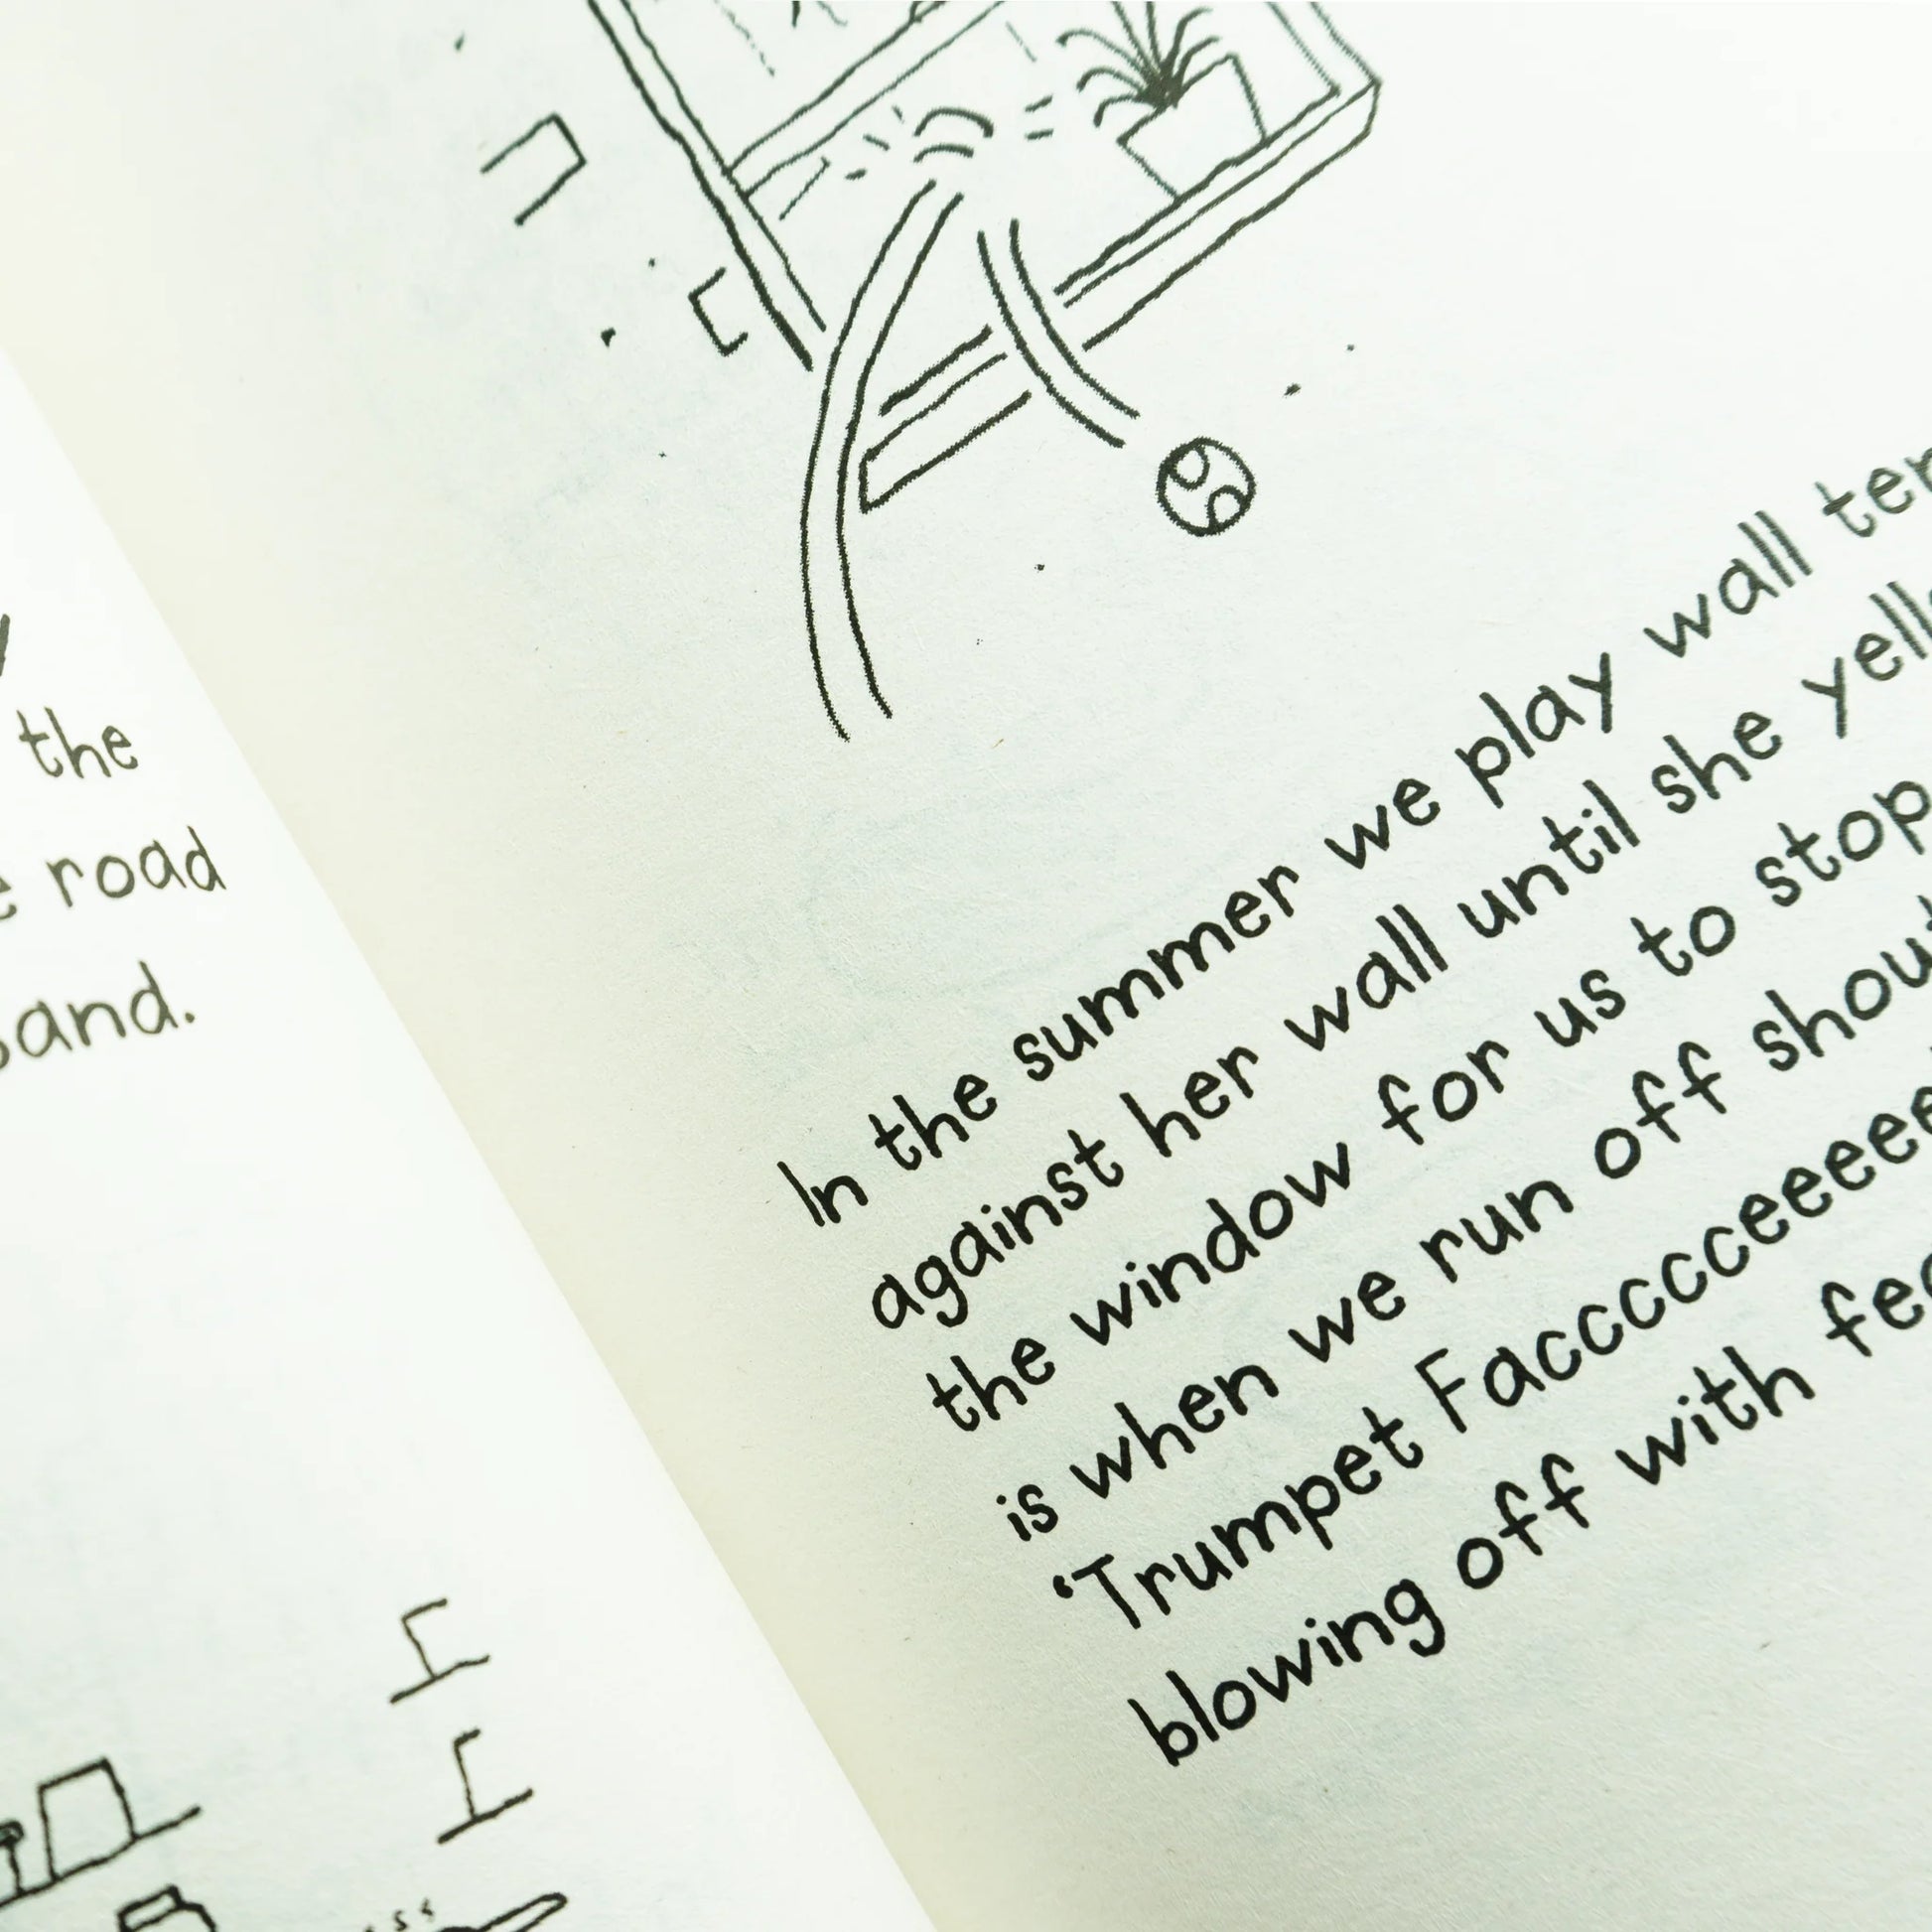 the
road
and.
In the summer we play wall
against her wall until she
the window for us to stop
is when we run off
'Trumpet
blowing off with